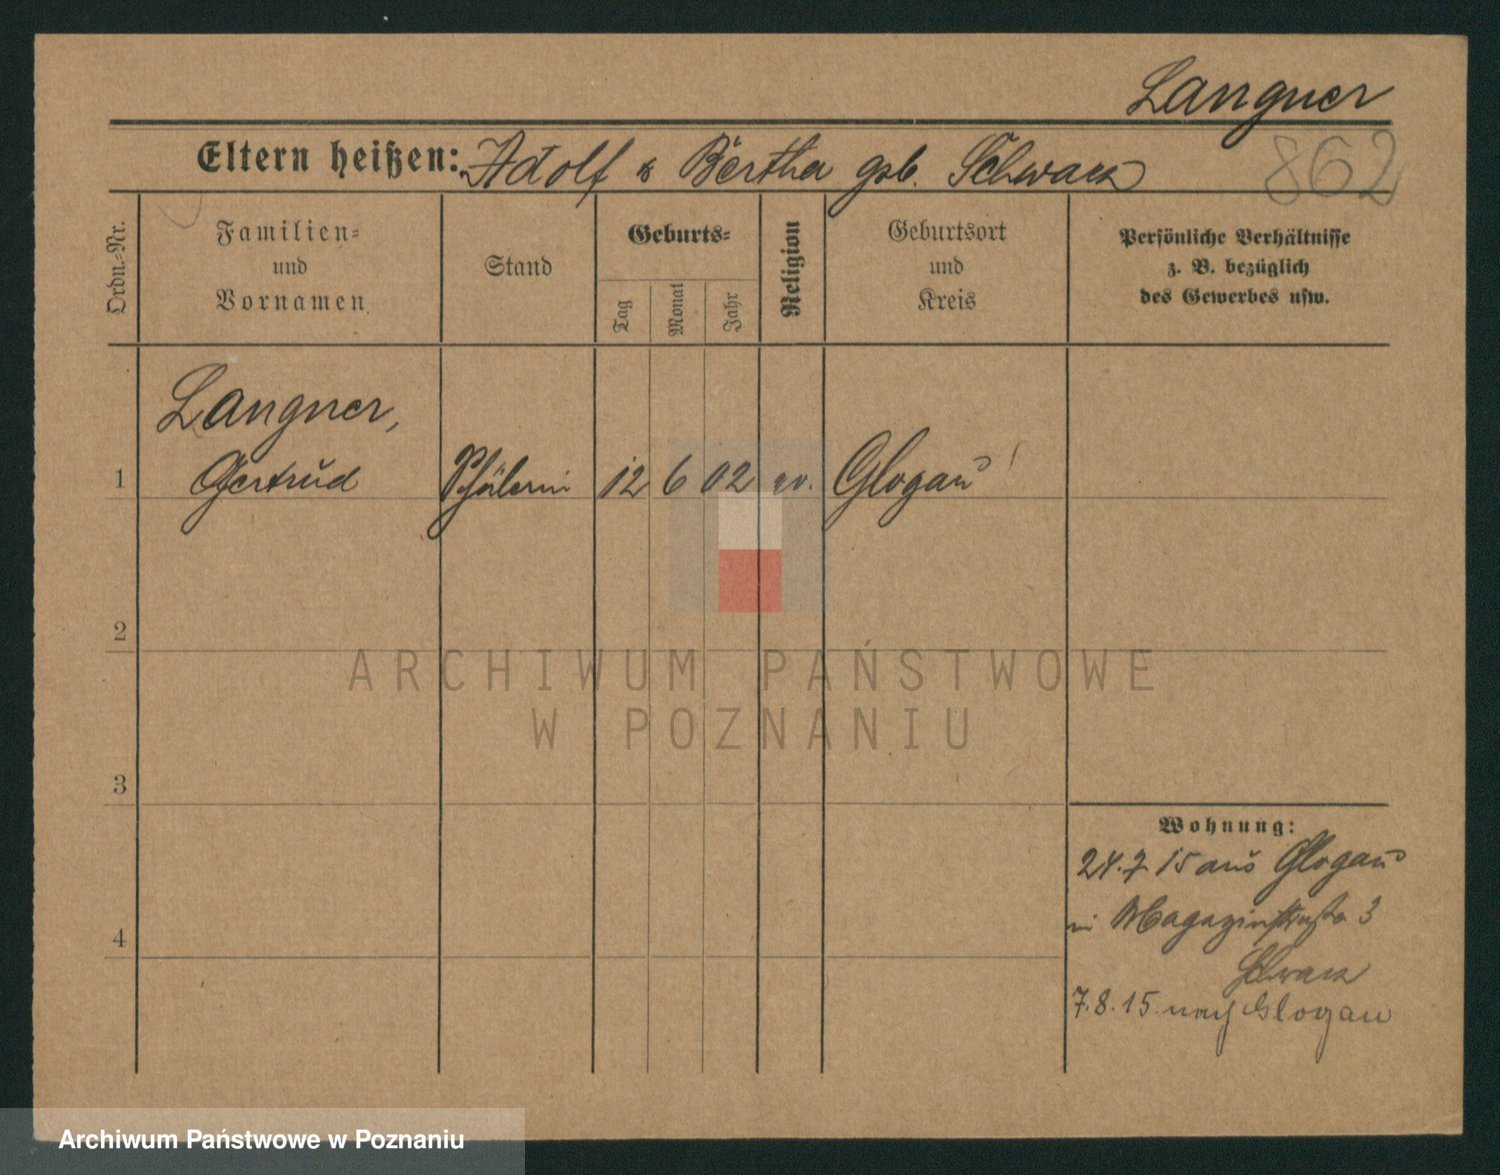 Langner
Eltern heißen: Adolf & Bertha geb. Schwarz
862
Ordn.=Nr.
Familien=
und
Vornamen
Stand
Geburts=
Tag
Monat
Jahr
Religion
Geburtsort
und
Kreis
Persönliche Verhältnisse
z. B. bezüglich
des Gewerbes usw.
Langner,
1 Gertrud Schülerin 12 6 02 ev. Glogau
2
3
4
Wohnung:
24.7.15 aus Glogau
in Magazinstraße 3
Schwarz
7.8.15. nach Glogau
ARCHIWUM PAŃSTWOWE
W POZNANIU
Archiwum Państwowe w Poznaniu